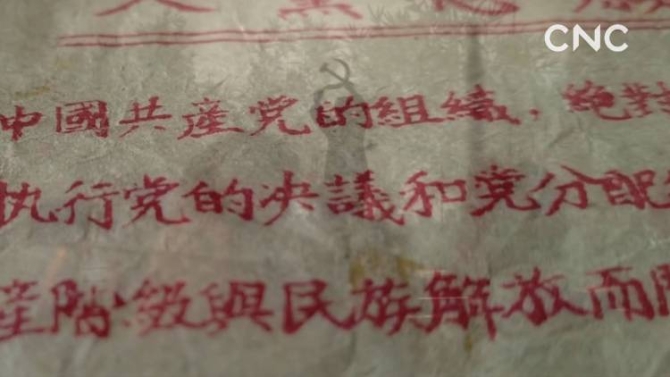 CNC
中國共產党的組織，絶對
执行党的决議和党分配
產階級與民族解放而